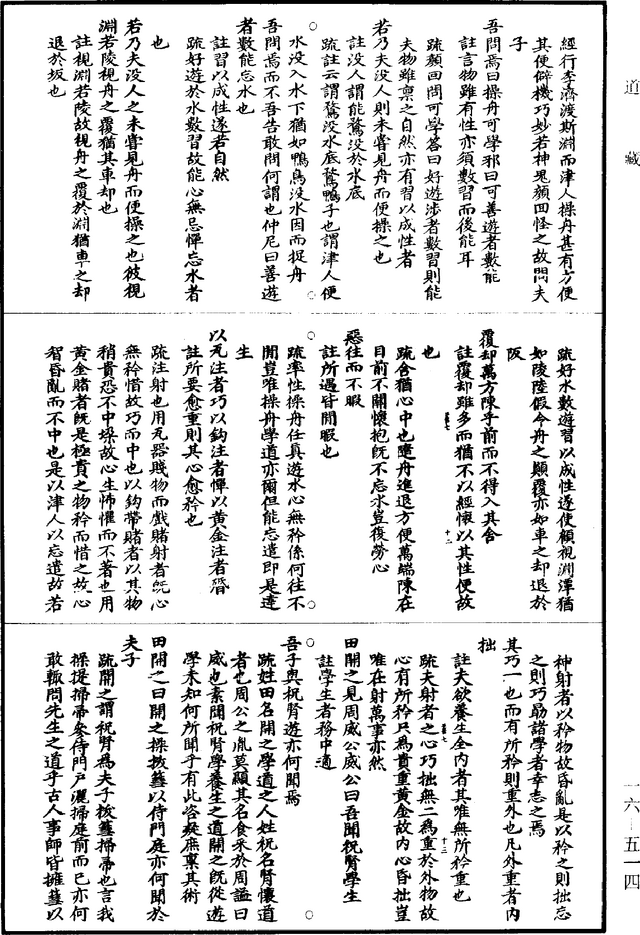 道藏
經行李濟渡斯淵而津人操舟甚有方便
其便僻機巧妙若神鬼顏回怪之故問夫
子
吾問焉曰操舟可學邪曰可善遊者數能
註言物雖有性亦須數習而後能耳
疏顏回問可學答曰好遊涉者數習則能
夫物雖稟之自然亦有習以成性者
若乃夫没人則未嘗見舟而便操之也
註没人謂能鶩没於水底
疏註云謂鶩没水底鶩鴨子也謂津人便
水没入水下猶如鴨鳥没水因而捉舟
吾問焉而不吾告敢問何謂也仲尼曰善遊
者數能忘水也
註習以成性遂若自然
疏好遊於水數習故能心無忌憚忘水者
也
若乃夫没人之未嘗見舟而便操之也彼視
淵若陵視舟之覆猶其車却也
註視淵若陵故視舟之覆於淵猶車之却
退於坂也
疏好水數遊習以成性遂使顧視淵潭猶
如陵陸假令舟之顛覆亦如車之却退於
阪
覆却萬方陳乎前而不得入其舍
註覆却雖多而猶不以經懷以其性便故
也
疏舍猶心中也隨舟進退方便萬端陳在
目前不關懷抱既不忘水豈復勞心
惡往而不暇
註所遇皆閒暇也
疏率性操舟任真遊水心無矜係何往不
閒豈唯操舟學道亦爾但能忘遣即是達
生
以瓦注者巧以鈎注者憚以黄金注者殙
註所要愈重則其心愈矜也
疏注射也用瓦器賤物而戲賭射者既心
無矜惜故巧而中也以鈎帶賭者以其物
稍貴恐不中垛故心生怖懼而不著也用
黄金賭者既是極貴之物矜而惜之故心
智昏亂而不中也是以津人以忘遣故若
神射者以矜物故昏亂是以矜之則拙忘
之則巧勗諸學者幸志之焉
其巧一也而有所矜則重外也凡外重者内
拙
註夫欲養生全内者其唯無所矜重也
疏夫射者之心巧拙無二為重於外物故
心有所矜只為貴重黄金故内心昏拙豈
唯在射萬事亦然
田開之見周威公威公曰吾聞祝腎學生
註學生者務中適
吾子與祝腎遊亦何聞焉
疏姓田名開之學道之人姓祝名腎懷道
者也周公之胤莫顯其名食采於周謚曰
威也素聞祝腎學養生之道開之既從遊
學未知何所聞乎有此咨疑庶稟其術
田開之曰開之操拔篲以侍門庭亦何聞於
夫子
疏開之謂祝腎為夫子拔篲掃帚也言我
操提掃帚參侍門户灑掃庭前而已亦何
敢輙問先生之道乎古人事師皆擁篲以
一六—五一四